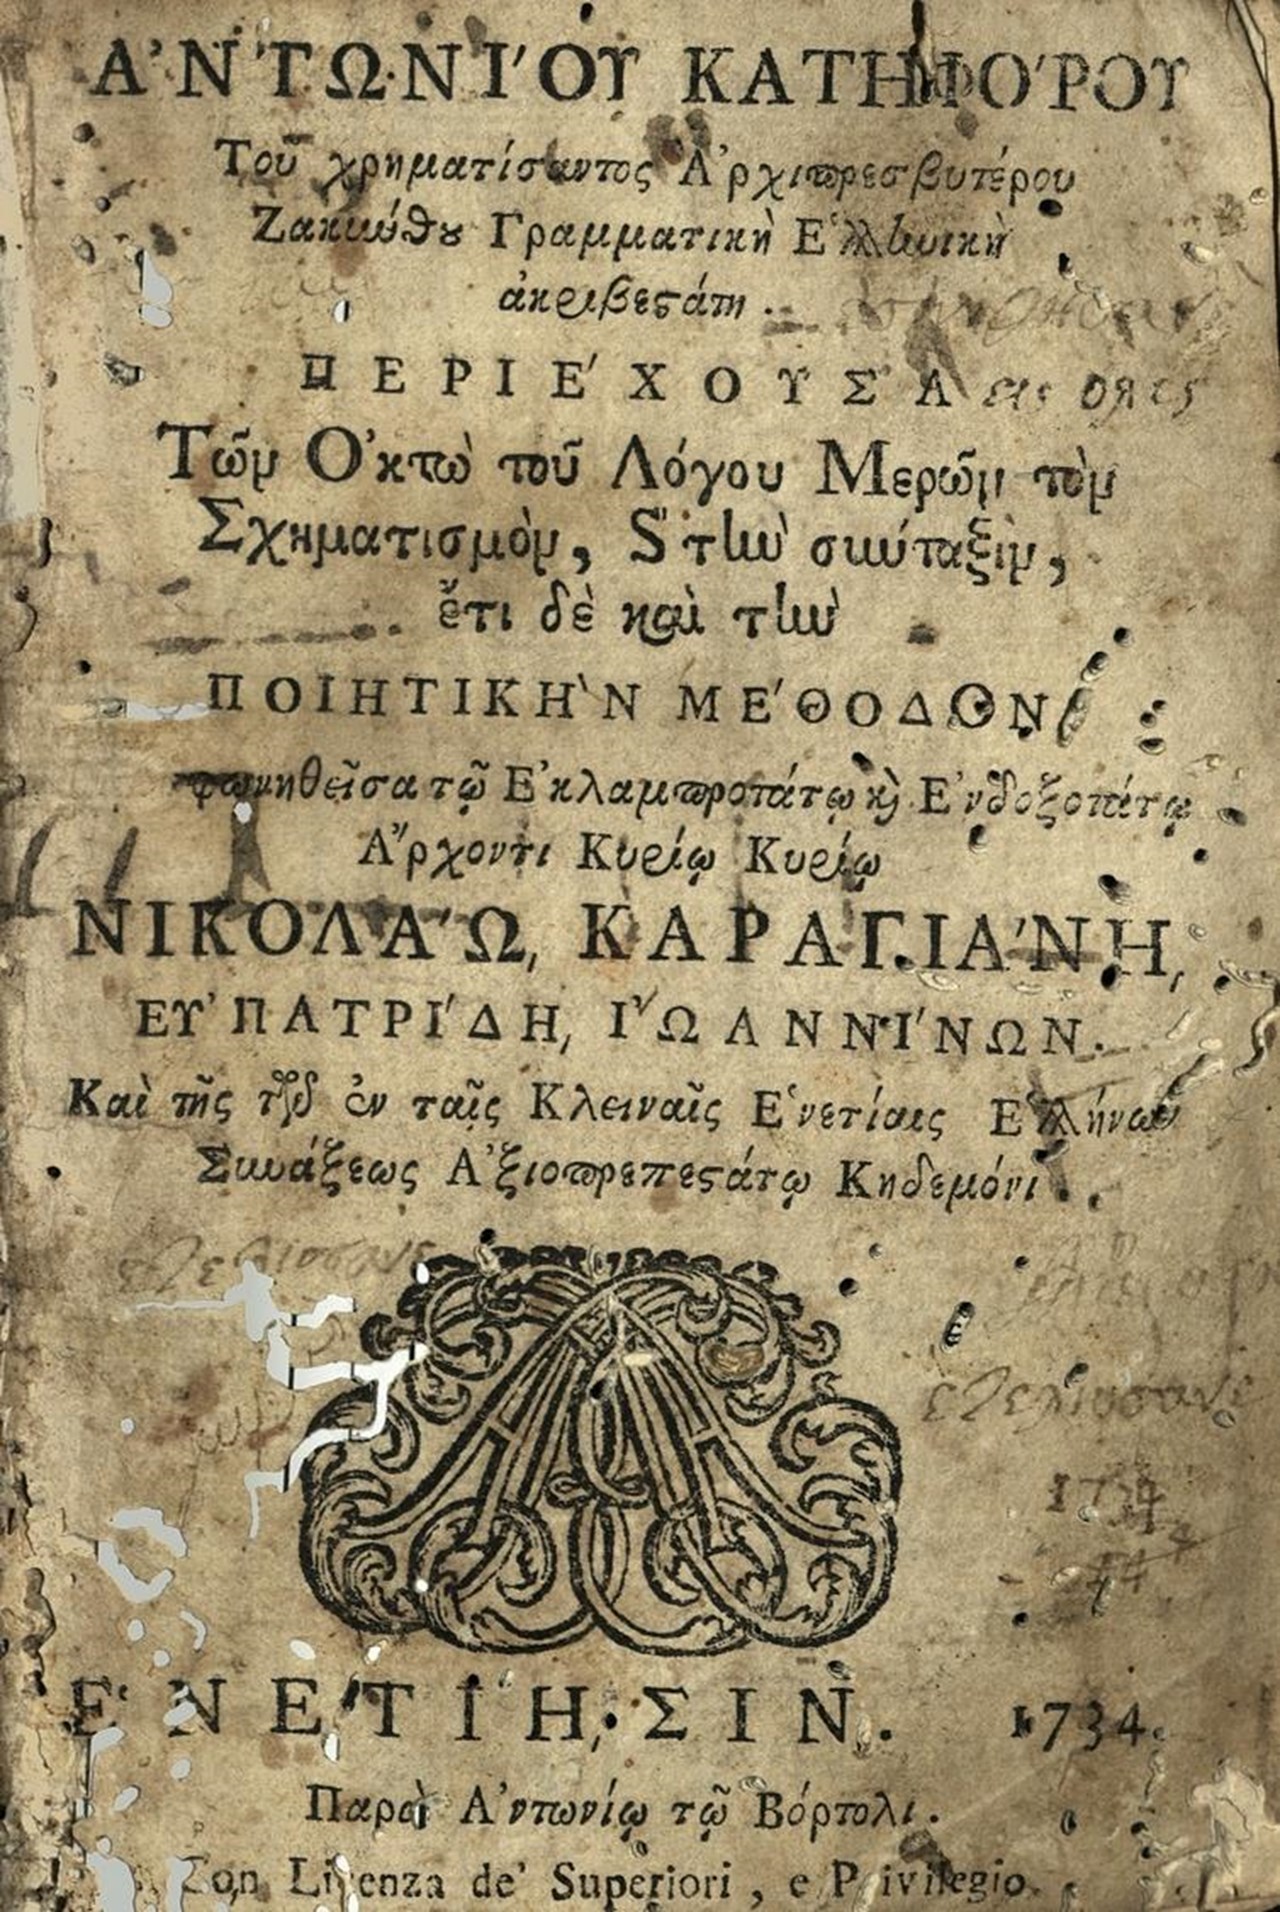 ἈΝΤΩΝΊΟΥ ΚΑΤΗΦΌΡΟΥ
Τοῦ χρηματίσαντος Ἀρχιπρεσβυτέρου
Ζακύνθου Γραμματικὴ Ἑλληνικὴ
ἀκριβεστάτη.
ΠΕΡΙΈΧΟΥΣΑ εις
Τῶν Ὀκτὼ τοῦ Λόγου Μερῶν τὸν
Σχηματισμὸν, Ϛ τὴν σύνταξιν,
ἔτι δὲ καὶ τὴν
ΠΟΙΗΤΙΚῊΝ ΜΈΘΟΔΟΝ
φωνηθεῖσα τῷ Ἐκλαμπροτάτῳ ϗ Ἐνδοξοτάτῳ
Ἄρχοντι Κυρίῳ Κυρίῳ
ΝΙΚΟΛΆΩ, ΚΑΡΑΓΙΆΝΗ,
ΕΥ̓ΠΑΤΡΊΔΗ, ἸΩΑΝΝΊΝΩΝ.
Καὶ τῆς τῶν ἐν ταῖς Κλειναῖς Ἑνετίαις Ἑλλήνων
Συνάξεως Ἀξιοπρεπεστάτῳ Κηδεμόνι.
1734
44
ἙΝΕΤΊΗ,ΣΙΝ. 1734.
Παρὰ Ἀντωνίῳ τῷ Βόρτολι.
Con Licenza de' Superiori, e Privilegio.